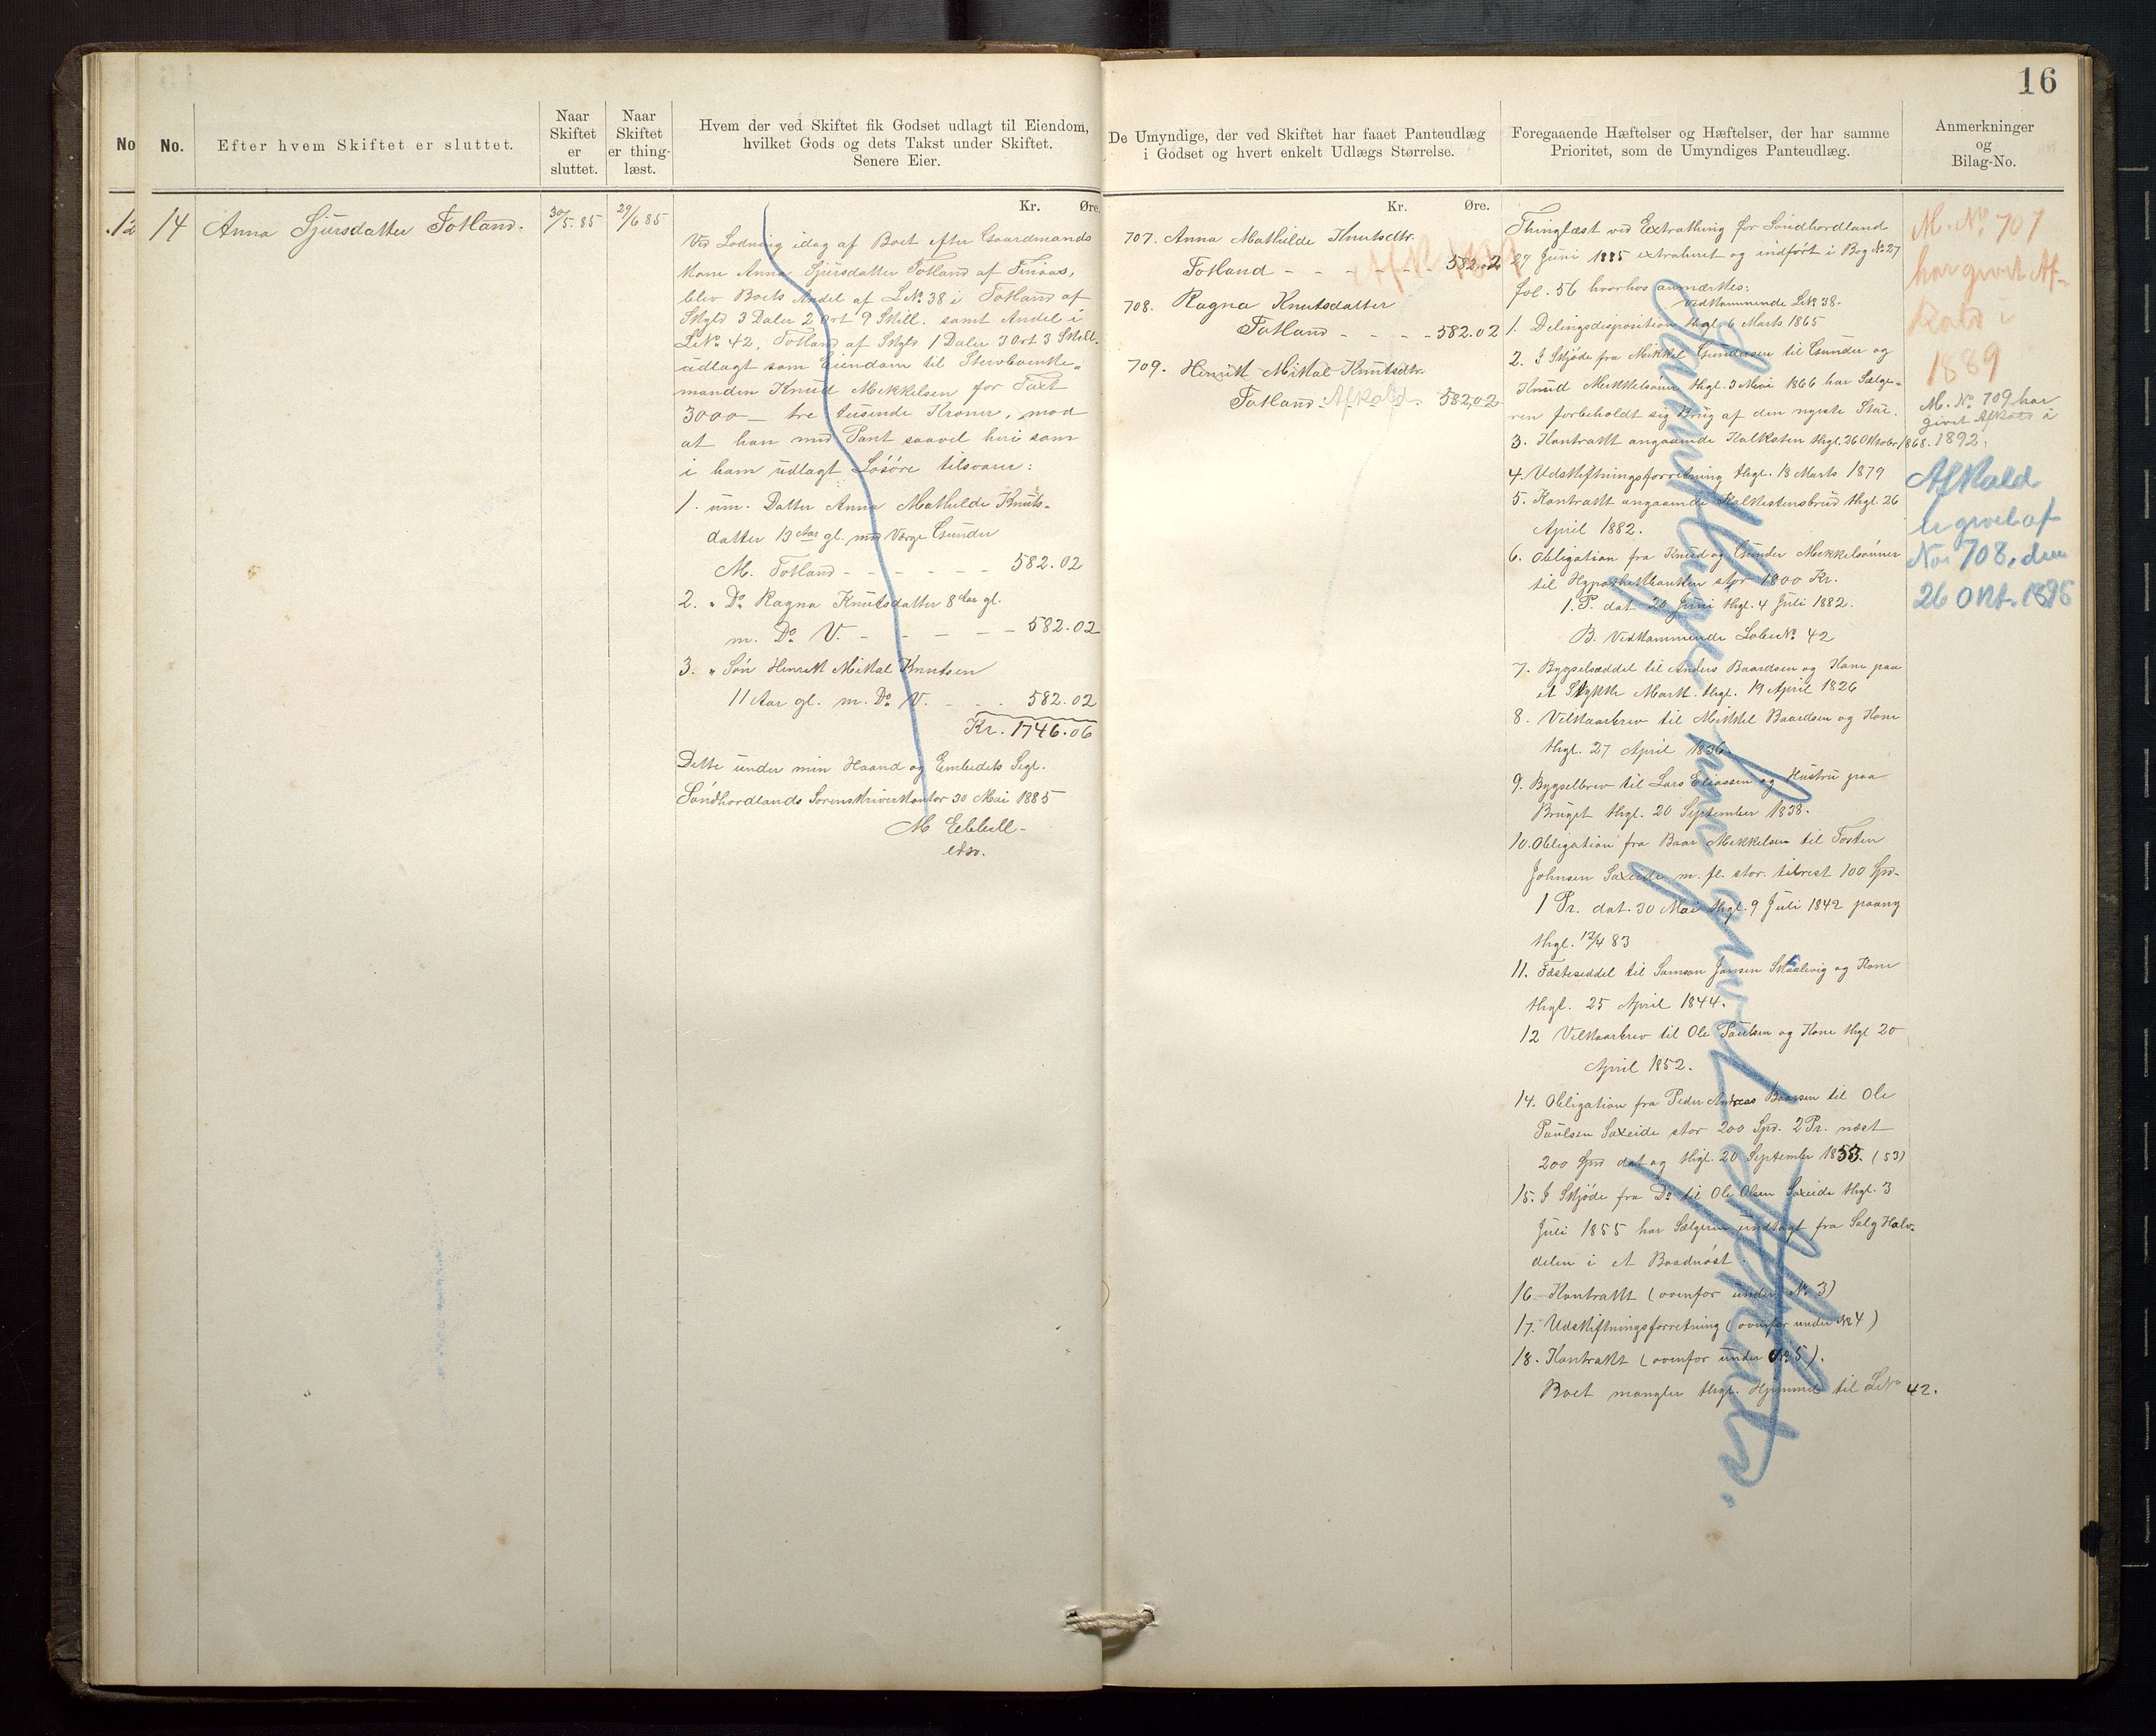 16
No
No.
Efter hvem Skiftet er sluttet.
Naar
Skiftet
er
sluttet.
Naar
Skiftet
er thing-
læst.
Hvem der ved Skiftet fik Godset udlagt til Eiendom,
hvilket Gods og dets Takst under Skiftet.
Senere Eier.
De Umyndige, der ved Skiftet har faaet Panteudlæg
i Godset og hvert enkelt Udlægs Størrelse.
Foregaaende Hæftelser og Hæftelser, der har samme
Prioritet, som de Umyndiges Panteudlæg.
Anmerkninger
og
Bilag-No.
12
14
Anna Sjursdatter Totland.
30/5.85
29/6 85
Kr. Øre.
Ved Lodning idag af Boet efter Gaardmands
Kone Anna Sjursdatter Totland af Finaas,
blev Boets Andel af LNo. 38 i Totland af
Skyld 3 Daler 2 ort 9 Skill. samt Andel i
LNo 42, Totland af Skyld 1 Daler 3 Ort 3 Skill.
udlagt som Eiendom til Stervboenke-
manden Knud Mikkelsen for Taxt
3000 - tre tusende Kroner, mod
at han med Pant saavel heri som
i ham udlagt Løsøre tilsvarer:
1. um. Datter Anna Mathilde Knuts-
datter 13 Aar gl. med Værge Gunder
M. Totland - - - - - - 582.02
2. " Do Ragna Knutsdatter 8 Aar gl.
m. Do V. - - - - - 582.02
3. " Søn Henrik Mikal Knutsen
11 Aar gl. m. Do V. - - - 582.02
Kr. 1746.06
Dette under min Haand og Embedets Segl.
Søndhordlands Sorenskriverkontor 30 Mai 1885
M Ebbell -
Kr. Øre.
707. Anna Mathilde Knutsdtr.
Totland - - - - - - 582.02
708. Ragna Knutsdatter
Totland - - - - 582.02
709. Henrik Mikal Knutsdtr.
Totland. Afkald. 582,02
Thinglæst ved Extrathing for Søndhordland
29 Juni 1885 extraheret og indført i Bog No 27
fol. 56 hvorhos anmærkes:
vedkommende LNo 38.
1. Delingsdisposition thgl. 6 Marts 1865
2. I Skjøde fra Mikkel Gundersen til Gunder og
Knud Mikkelsønner thgl. 3 Mai 1866 har Sælge-
ren forbeholdt sig Brug af den nyeste Stue.
3. Kontrakt angaaende Kalksten thgl. 26 Oktober 1868.
4. Udskiftningsforretning thgl. 18 Marts 1879
5. Kontrakt angaaende Kalkstensbrud thgl. 26
April 1882.
6. Obligation fra Knud og Gunder Mikkelsønner
til Hypothekbanken stor 1800 Kr.
1. P. dat. 20 Juni thgl. 4 Juli 1882.
B. Vedkommende LøbeNo. 42
7. Bygselseddel til Anders Baardsen og Kone paa
et Stykke Mark. thgl. 19 April 1826
8. Vilkaarbrev til Mikkel Baardsen og Kone
thgl. 27 April 1836.
9. Bygselbrev til Lars Eliassen og Hustru paa
Bruget thgl. 20 September 1838.
10. Obligation fra Baar Mikkelsen til Tosten
Johnsen Saxeide m. fl. stor. tilrest 100 Spd.
1 Pr. dat. 30 Mai thgl. 9 Juli 1842 paany
thgl. 12/4 83
11. Fæsteseddel til Samson Jansen Skaalevig og Kone
thgl. 25 April 1844.
12 Vilkaarbrev til Ole Paulsen og Kone thgl 20
April 1852.
14. Obligation fra Peder Andreas Baarsen til Ole
Paulsen Saxeide stor 200 Spd. 2 Pr. næst
200 Spd dat og thgl. 20 September 1853. (53)
15. I Skjøde fra Do til Ole Olsen Saxeide thgl. 3
Juli 1855 har Sælgeren undtagt fra Salg Halv-
delen i et Baadnøst.
16 Kontrakt (ovenfor under No 3)
17. Udskiftningsforretning (ovenfor under No 4)
18. Kontrakt (ovenfor under No 5).
Boet mangler thgl. Hjemmel til LNo 42.
M. No. 707
har givet Af-
kald i
1889
M. No. 709 har
givet Afkald i
1892.
Afkald
er givet af
No. 708, den
26 Okt. 1895
Samtlige har givet Afkald.